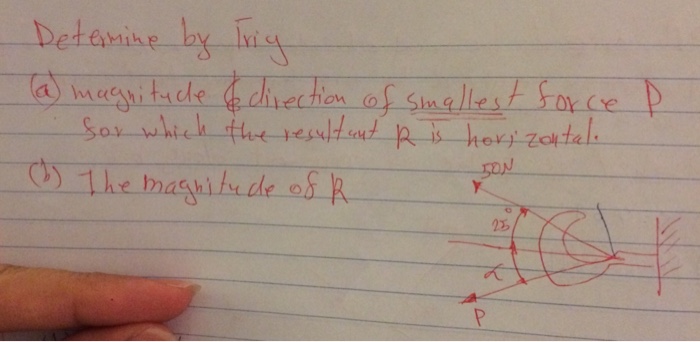 Determine by Trig
(a) magnitude & direction of smallest force P
for which the resultant R is horizontal.
(b) The magnitude of R
50N
25°
α
P